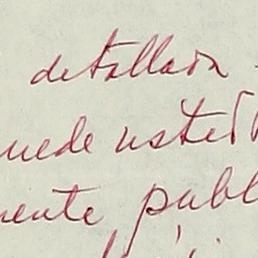 detallada
uede usted
mente publ